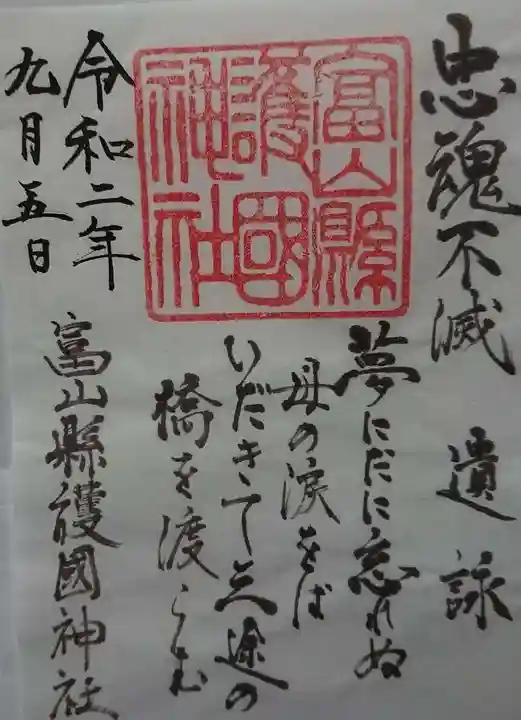 忠魂不滅 遺詠
夢にだに忘れぬ
母の涙をば
いだきて三途の
橋を渡らむ
富山縣
護國
神社
令和二年
九月五日
富山縣護國神社